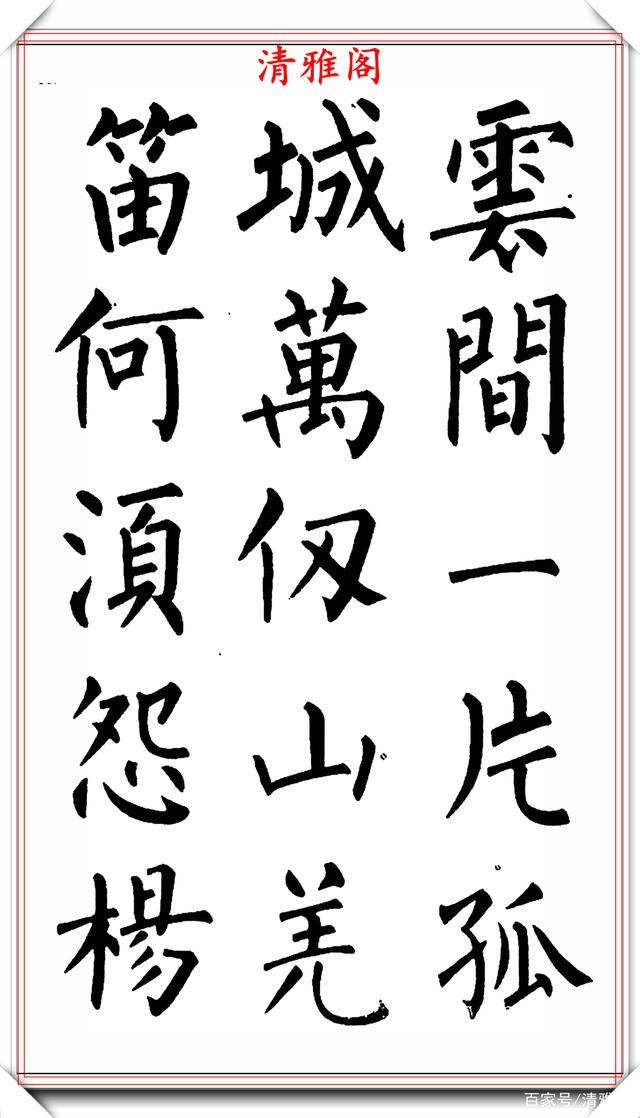 清雅阁
雲間一片孤
城萬仭山羌
笛何湏怨楊
百家号/清雅